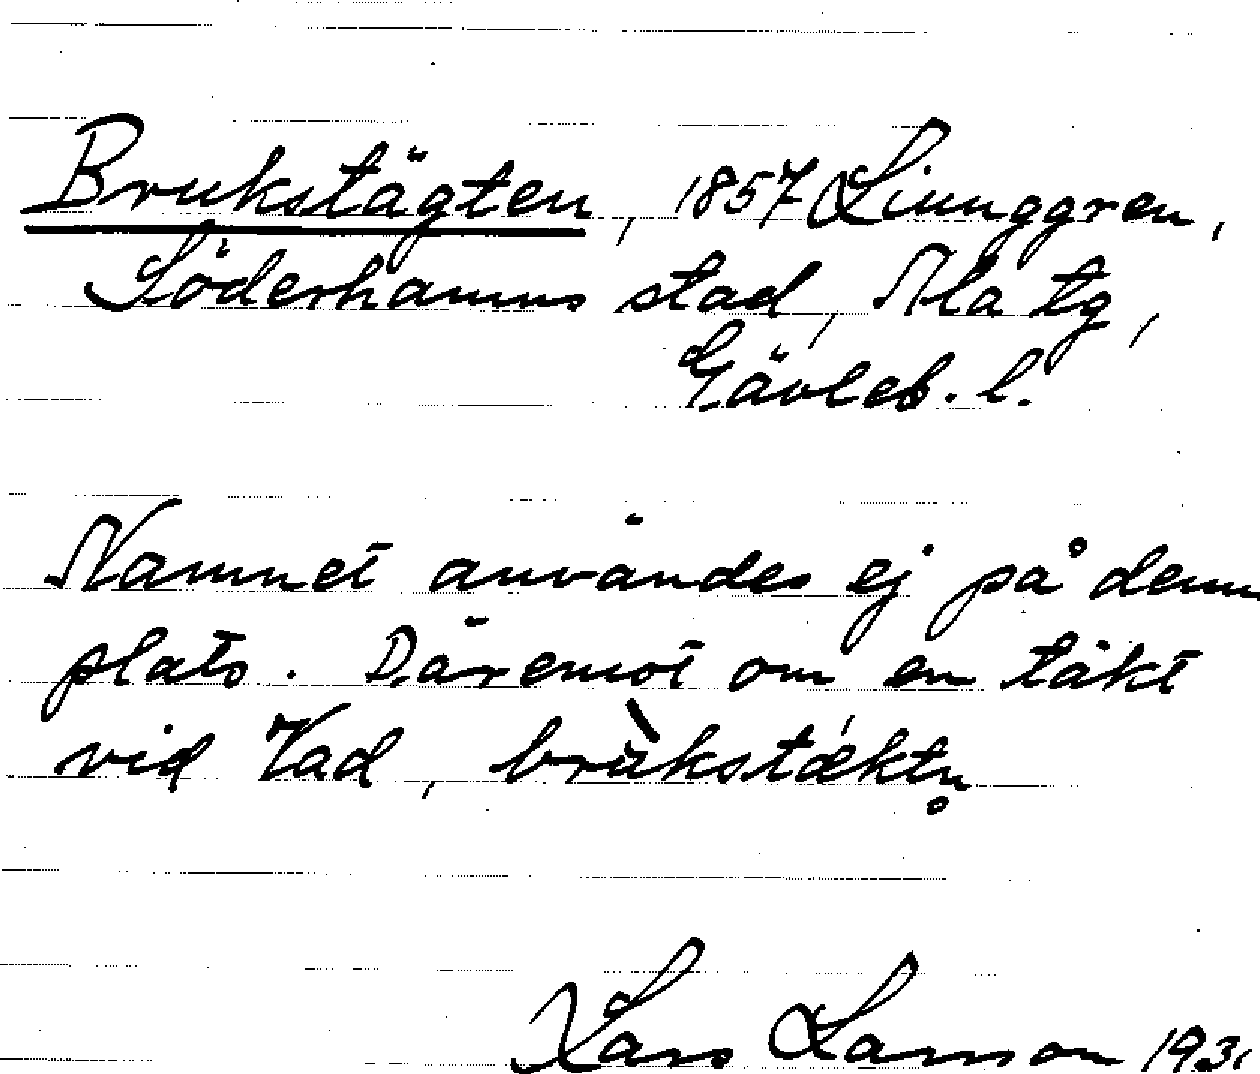 Brukstägten, 1857 Liunggren,
Söderhamns stad, Ala tg,
Gävleb. l.
Namnet användes ej på denna
plats. Däremot om en täkt
vid Vad, brùkstǽktn̥
Lars Larsson 193